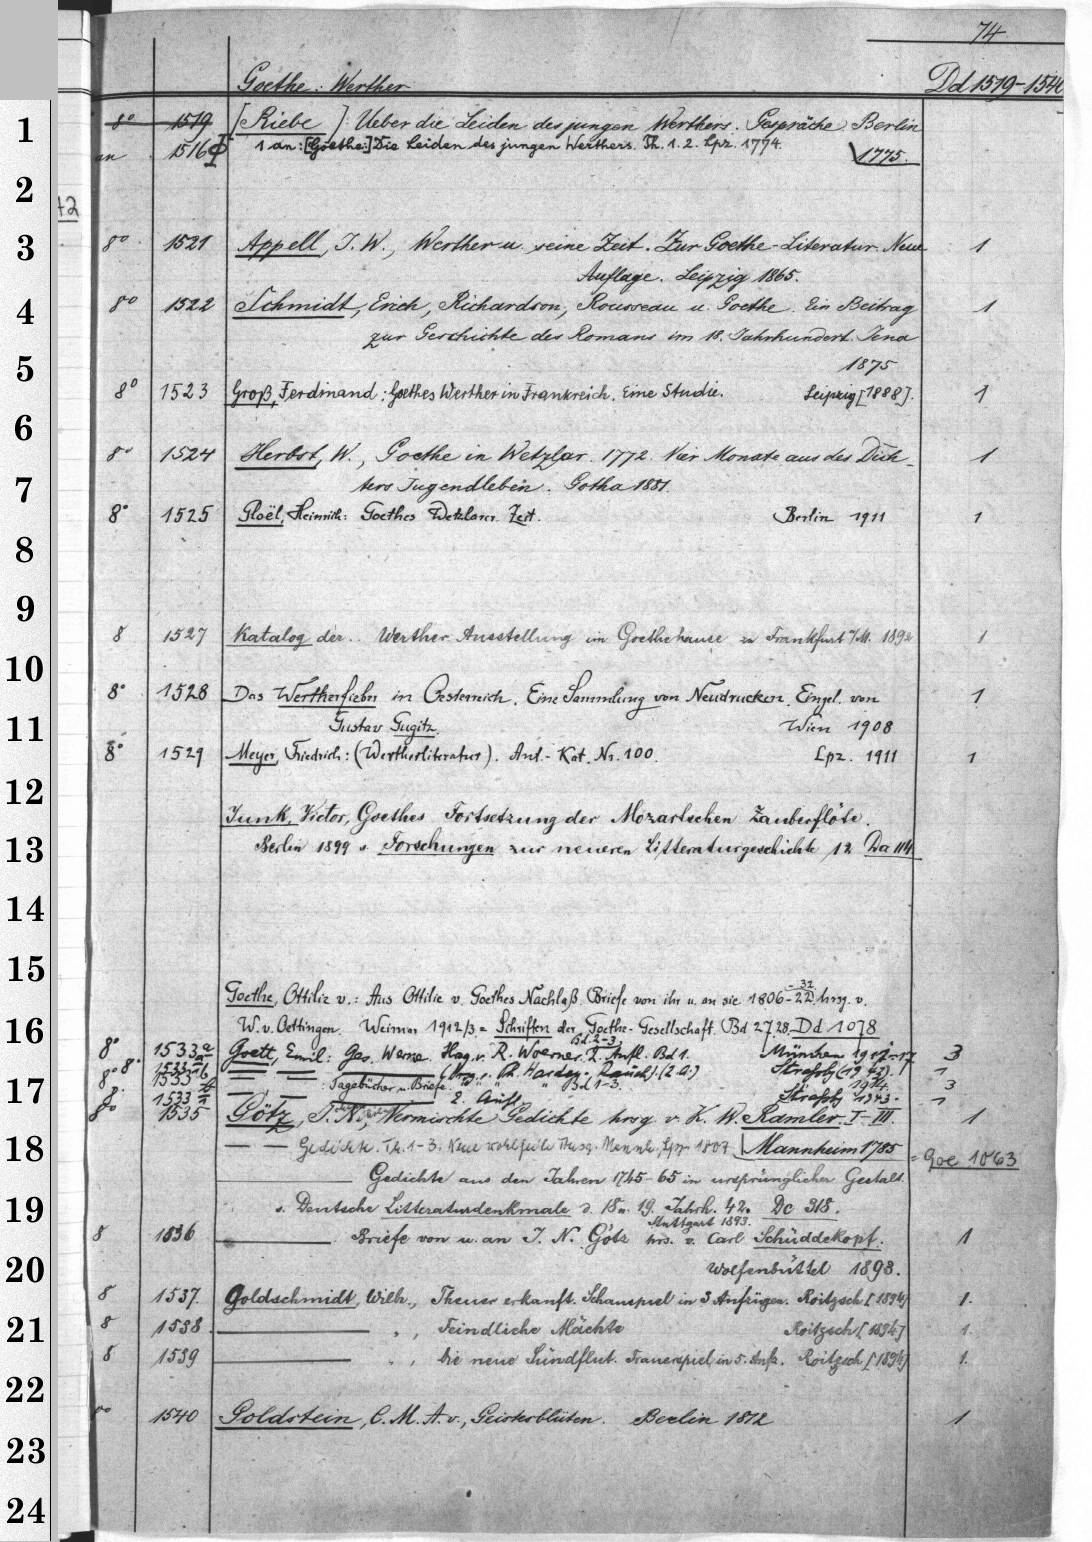 74
Goethe: Werther
Dd 1519-1540
1
8° 1519 [Riebe]: Ueber die Leiden des jungen Werthers. Gespräche. Berlin
an 1516 1 an: [Goethe:] Die Leiden des jungen Werthers. Th. 1. 2. Lpz. 1774. 1775.
2
42
3
8° 1521 Appell, J. W., Werther u. seine Zeit. Zur Goethe-Literatur. Neue 1
Auflage. Leipzig 1865.
4
8° 1522 Schmidt, Erich, Richardson, Rousseau u. Goethe. Ein Beitrag 1
zur Geschichte des Romans im 18. Jahrhundert. Jena
5
1875
8° 1523 Groß, Ferdinand: Goethes Werther in Frankreich. Eine Studie. Leipzig [1888]. 1
6
8° 1524 Herbst, W., Goethe in Wetzlar. 1772. Vier Monate aus des Dich- 1
7
ters Jugendleben. Gotha 1881.
8° 1525 Gloël, Heinrich: Goethes Wetzlarer Zeit. Berlin 1911 1
8
9
8 1527 Katalog der.. Werther Ausstellung im Goethehause zu Frankfurt a/M. 1892 1
10
8° 1528 Das Wertherfieber in Oesterreich. Eine Sammlung von Neudrucken. Eingel. von 1
11
Gustav Gugitz. Wien 1908
8° 1529 Meyer, Friedrich: (Wertherliteratur). Ant.-Kat. Nr. 100. Lpz. 1911 1
12
Junk, Victor, Goethes Fortsetzung der Mozartschen Zauberflöte.
13
Berlin 1899 s. Forschungen zur neueren Litteraturgeschichte 12 Da 114
14
15
Goethe, Ottilie v.: Aus Ottilie v. Goethes Nachlaß. Briefe von ihr u. an sie 1806-22 32 hrsg. v.
16
W. v. Oettingen. Weimar 1912/3 = Schriften der Goethe-Gesellschaft. Bd 27 28. Dd 1078
Bd. 2-3
8° 1533 a Goett, Emil: Ges. Werke. Hsg. v. R. Woerner. 2. Aufl. Bd 1. München 1917-17 3
8° 1533 (2. A.) Straßb. 1
17
8° 1533 b : Tagebücher u. Briefe. Bd 1-3. 1914. 3
8° 1533 2. Aufl. Straßb. 1943. 1
8° 1535 Götz, J. N., Vermischte Gedichte hrsg v. K. W. Ramler. I-III. 1
18
Gedichte. Th. 1-3. Neue wohlfeile Ausg. Mannh., Lpz. 1807 Mannheim 1785 = Goe 1063
Gedichte aus den Jahren 1745-65 in ursprünglicher Gestalt.
19
s. Deutsche Litteraturdenkmale d. 18 u. 19. Jahrh. 42. Dc 318.
Stuttgart 1893.
8 1536 Briefe von u. an J. N. Götz hrs. v. Carl Schüddekopf. 1
20
Wolfenbüttel 1898.
8 1537. Goldschmidt, Wilh., Theuer erkauft. Schauspiel in 3 Aufzügen. Roitzsch [1894] 1.
21
8 1538. „ , Feindliche Mächte Roitzsch [1894] 1.
8 1539 „ , Die neue Sündflut. Trauerspiel in 5. Aufz. Roitzsch [1894] 1.
22
8° 1540 Goldstein, C. M. A. v., Geisterblüten. Berlin 1872 1
23
24